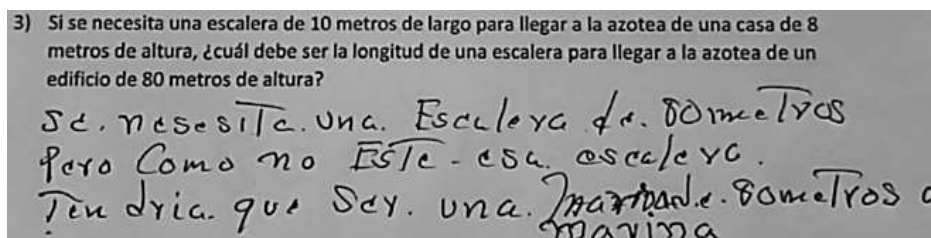 3) Si se necesita una escalera de 10 metros de largo para llegar a la azotea de una casa de 8
metros de altura, ¿cuál debe ser la longitud de una escalera para llegar a la azotea de un
edificio de 80 metros de altura?
Se. nesesiTa. una. Escalera de. 80 meTros
Pero Como no EsTe - esa. escalera.
Ten dria. que Ser. una. 80 meTros